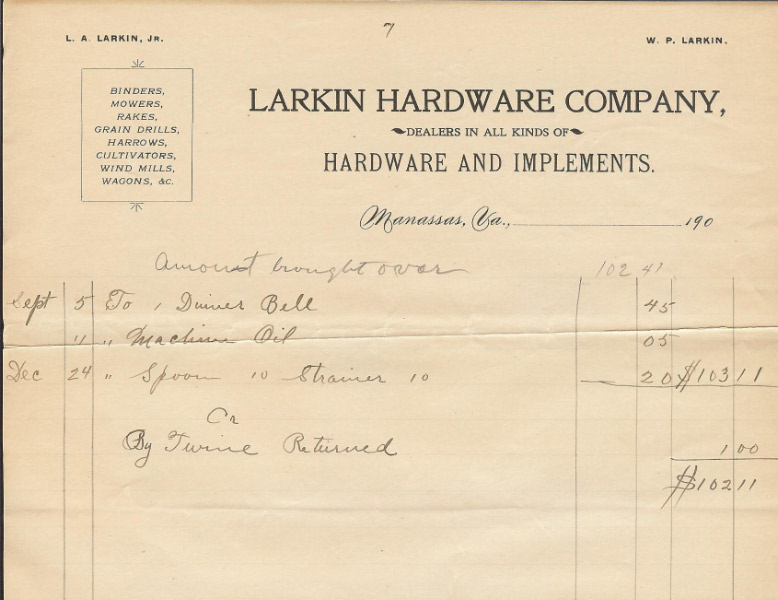 7
L. A. LARKIN, JR.
W. P. LARKIN.
BINDERS,
MOWERS,
RAKES,
GRAIN DRILLS,
HARROWS,
CULTIVATORS,
WIND MILLS,
WAGONS, &C.
LARKIN HARDWARE COMPANY,
DEALERS IN ALL KINDS OF
HARDWARE AND IMPLEMENTS.
Manassas, Va., 190
Amount brought over 102 41
Sept 5 To 1 Dinner Bell 45
" " Machine Oil 05
Dec 24 " Spoon 10 Strainer 10 20 $103 11
Cr
By Twine Returned 1 00
$102 11